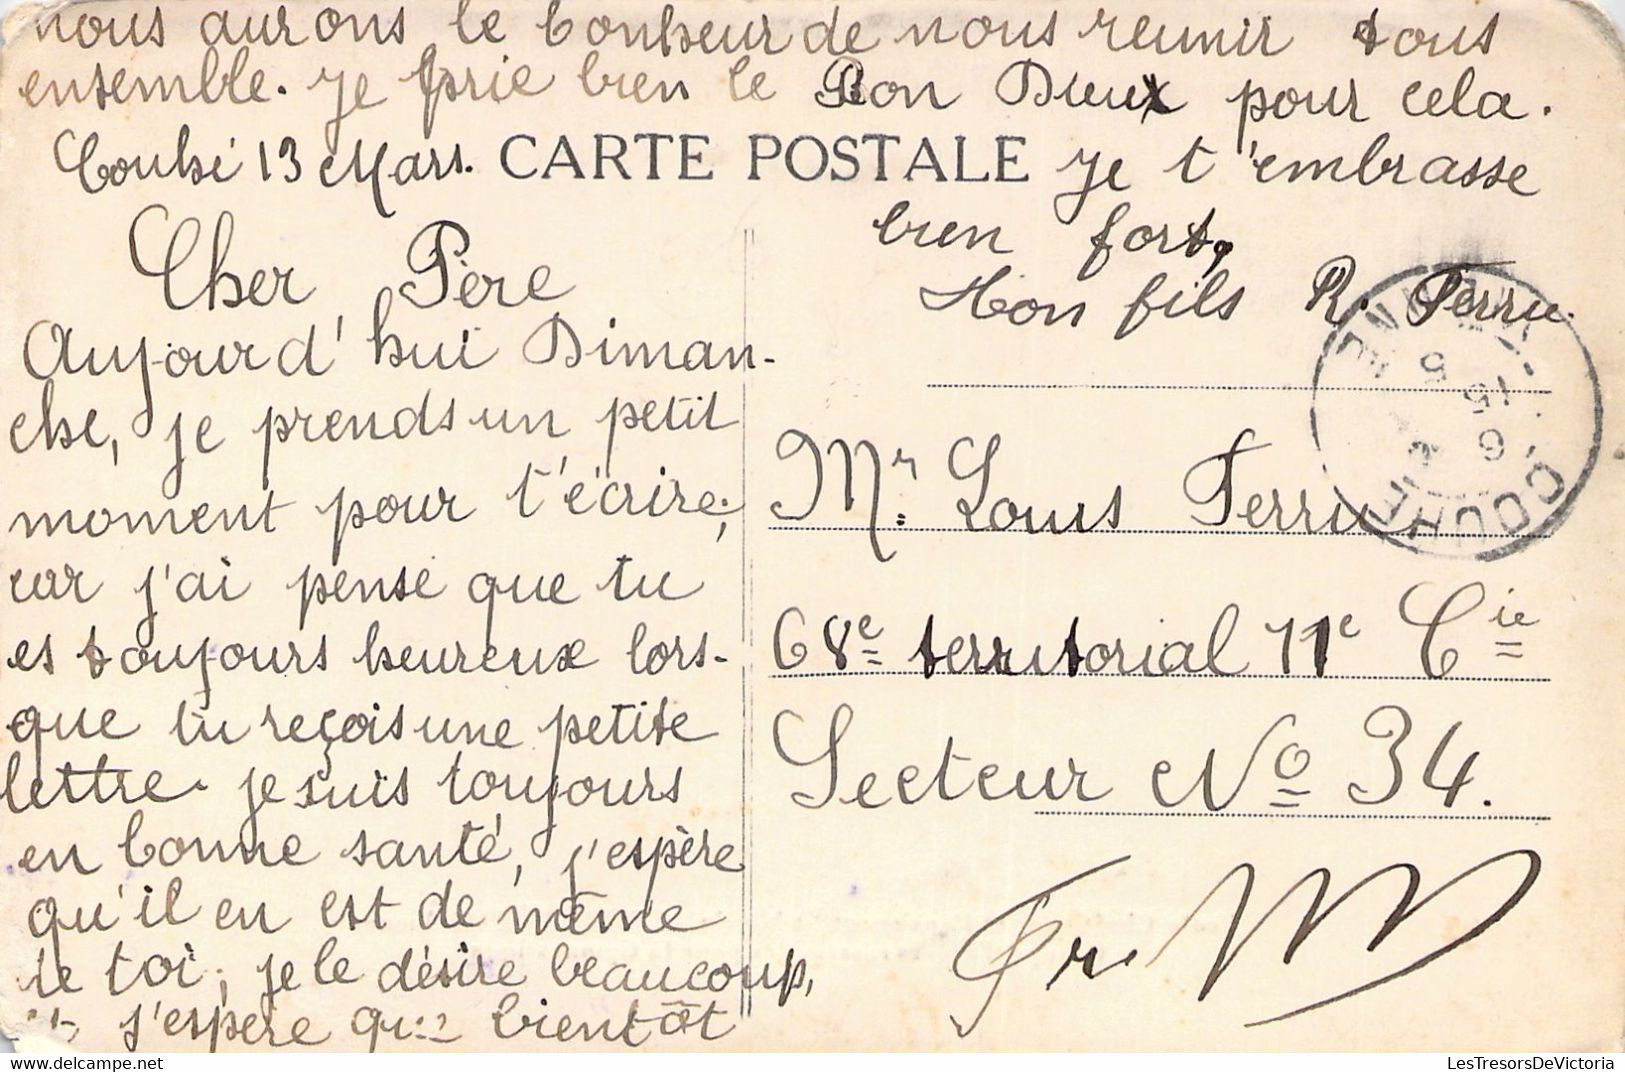 nous aurons le bonheur de nous reunir tous
ensemble. Je prie bien le Bon Dieux pour cela.
Couhé 13 Mars. CARTE POSTALE Je t'embrasse
bien fort,
Ton fils R. Ferru.
Cher Père
Aujourd'hui Diman-
che, je prends un petit
moment pour t'écrire,
car j'ai pensé que tu
es toujours heureux lors-
que tu reçois une petite
lettre. Je suis toujours
en bonne santé, j'espère
qu'il en est de même
de toi, je le désire beaucoup,
j'espère que bientôt
Mr. Louis Ferru
68e territorial 11e Cie
Secteur No 34.
COUHÉ
LesTresorsDeVictoria